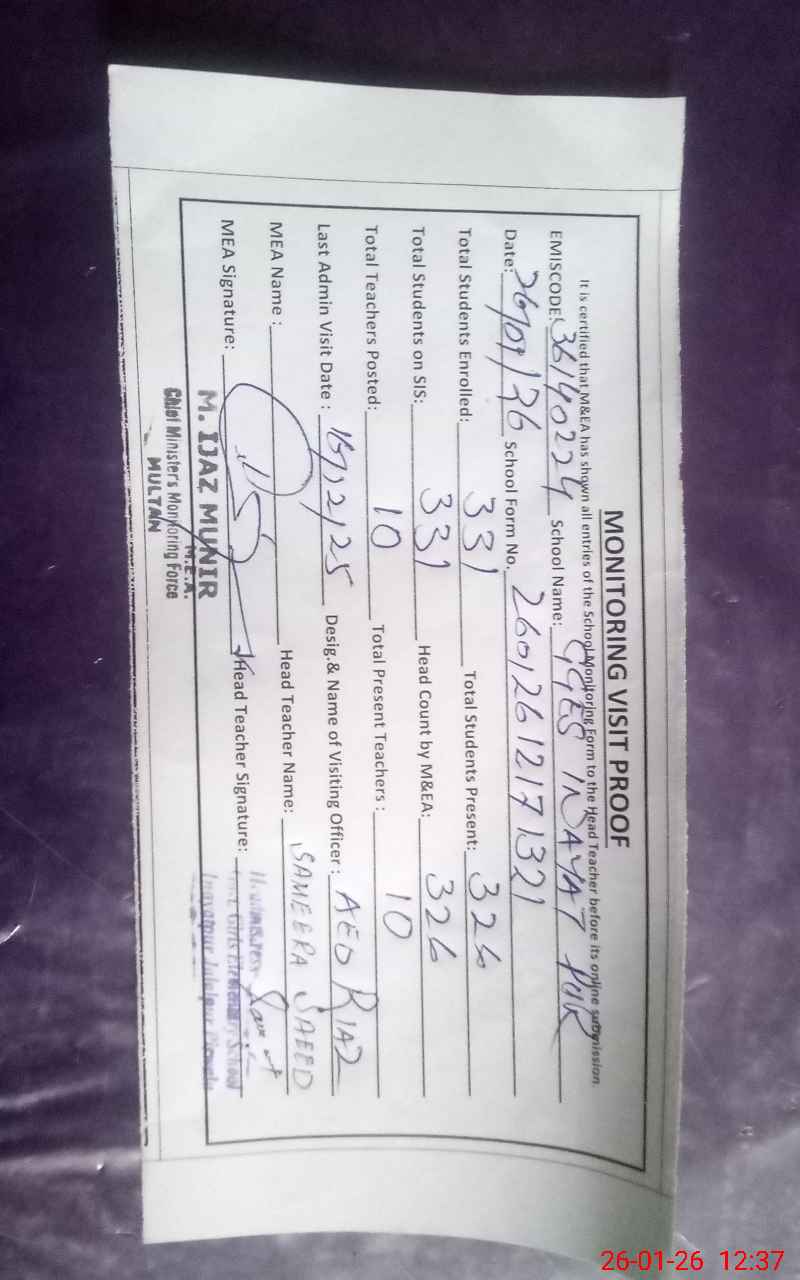 MONITORING VISIT PROOF
It is certified that M&EA has shown all entries of the School Monitoring Form to the Head Teacher before its online submission.
EMISCODE: 36140224 School Name: GGES INAYAT PUR
Date: 26/01/26 School Form No. 26012612171321
Total Students Enrolled: 331 Total Students Present: 326
Total Students on SIS: 331 Head Count by M&EA: 326
Total Teachers Posted: 10 Total Present Teachers: 10
Last Admin Visit Date: 16/12/25 Desig.& Name of Visiting Officer: AEO RIAZ
MEA Name: Head Teacher Name: SAMEERA SAEED
MEA Signature: Head Teacher Signature:
M. IJAZ MUNIR
M.E.A.
Chief Minister's Monitoring Force
MULTAN
Headmistress
Govt. Girls Elementary School
Inayatpur Jalalpur Pirwala
26-01-26 12:37